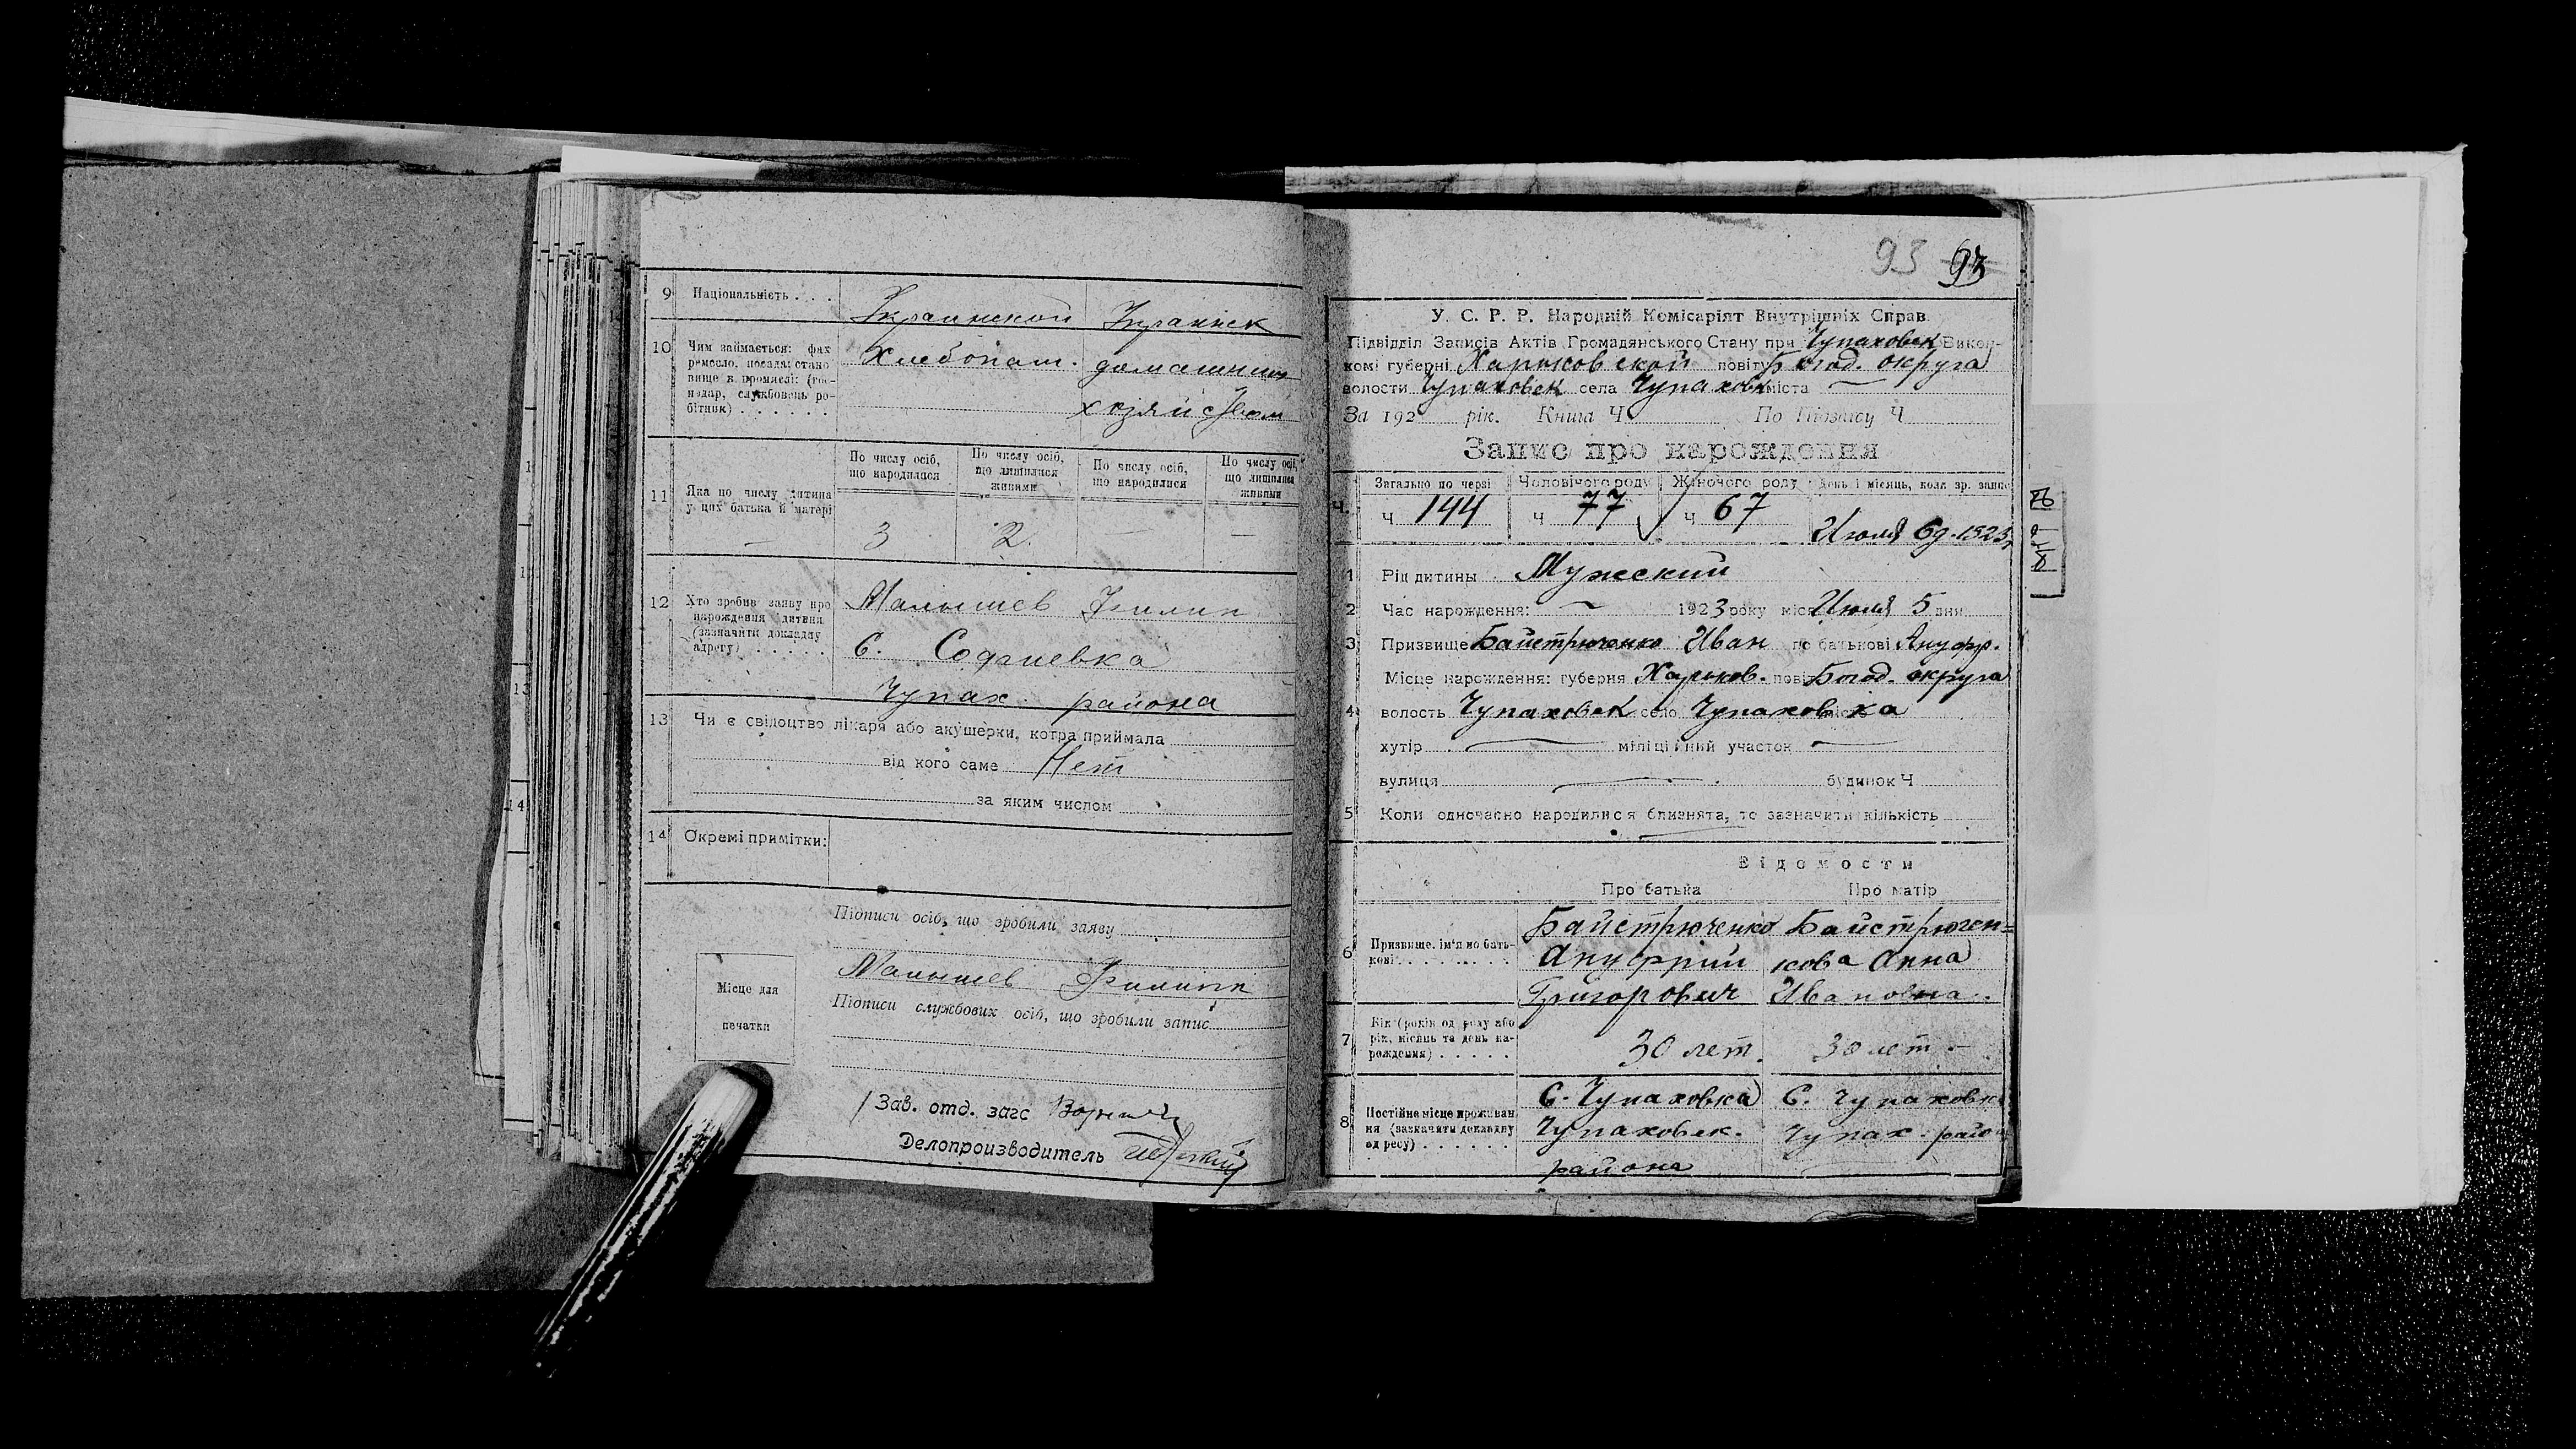 9 Національність . . . Украинской Украинск
10 Чим займається: фах
ремесло, посада: стано
вище в промислі: (гос-
подар, службовець ро-
бітник) . . . . . . .
Хлебопаш. домашним
хозяйством
11 Яка по числу дитина
у цих батька й матері
По числу осіб,
що народилися
По числу осіб,
що лишилися
живими
По числу осіб,
що народилися
По числу осіб,
що лишилися
живими
— 3 2. — —
12 Хто зробив заяву про
народження дитини
(зазначити докладну
адресу) . . . . .
Малышев Филип
С. Софиевка
Чупах. района
13 Чи є свідоцтво лікаря або акушерки, котра приймала
від кого саме Нет
за яким числом
14 Окремі примітки:
Підписи осіб, що зробили заяву
Малышев Филипп
Місце для
печатки
Підписи службових осіб, що зробили запис
Зав. отд. загс
Делопроизводитель
93 93
У. С. Р. Р. Народній Комісаріят Внутрішніх Справ.
Підвідділ Записів Актів Громадянського Стану при Чупаховск Викон-
комі губерні Харьковской повіту Богод. округа
волости Чупаховск села Чупаховк міста —
За 192 рік. Книга Ч По Підзагсу Ч
Запис про нарождення
Загально по черзі Чоловічого роду Жіночого роду День і місяць, коли зр. запис
Ч. Ч 144 Ч 77 Ч 67 Июля 6д. 1923
1 Рід дитини Мужский
2 Час нарождення: — 1923 року міся Июля 5 дня
3 Призвище Байстрюченко Иван по батькові Ануфр.
Місце нарождення: губерня Харьков. пов Богод. округа
4 волость Чупаховск село Чупаховка
хутір — міліційний участок —
вулиця — будинок Ч
5 Коли одночасно народилися близнята, то зазначити кількість
Відомости
Про батька Про матір
6 Призвище, ім'я по бать-
кові . . . . . . . .
Байстрюченко Байстрючен=
Ануфрий кова Анна
Григорович Ивановна.
7 Вік (років од роду або
рік, місяць та день на-
рождення) . . . . .
30 лет. 30 лет —
8 Постійне місце проживан
ня (зазначити докладну
адресу) . . . . . .
С. Чупаховка С. Чупаховка
Чупаховск. Чупах. райо
района